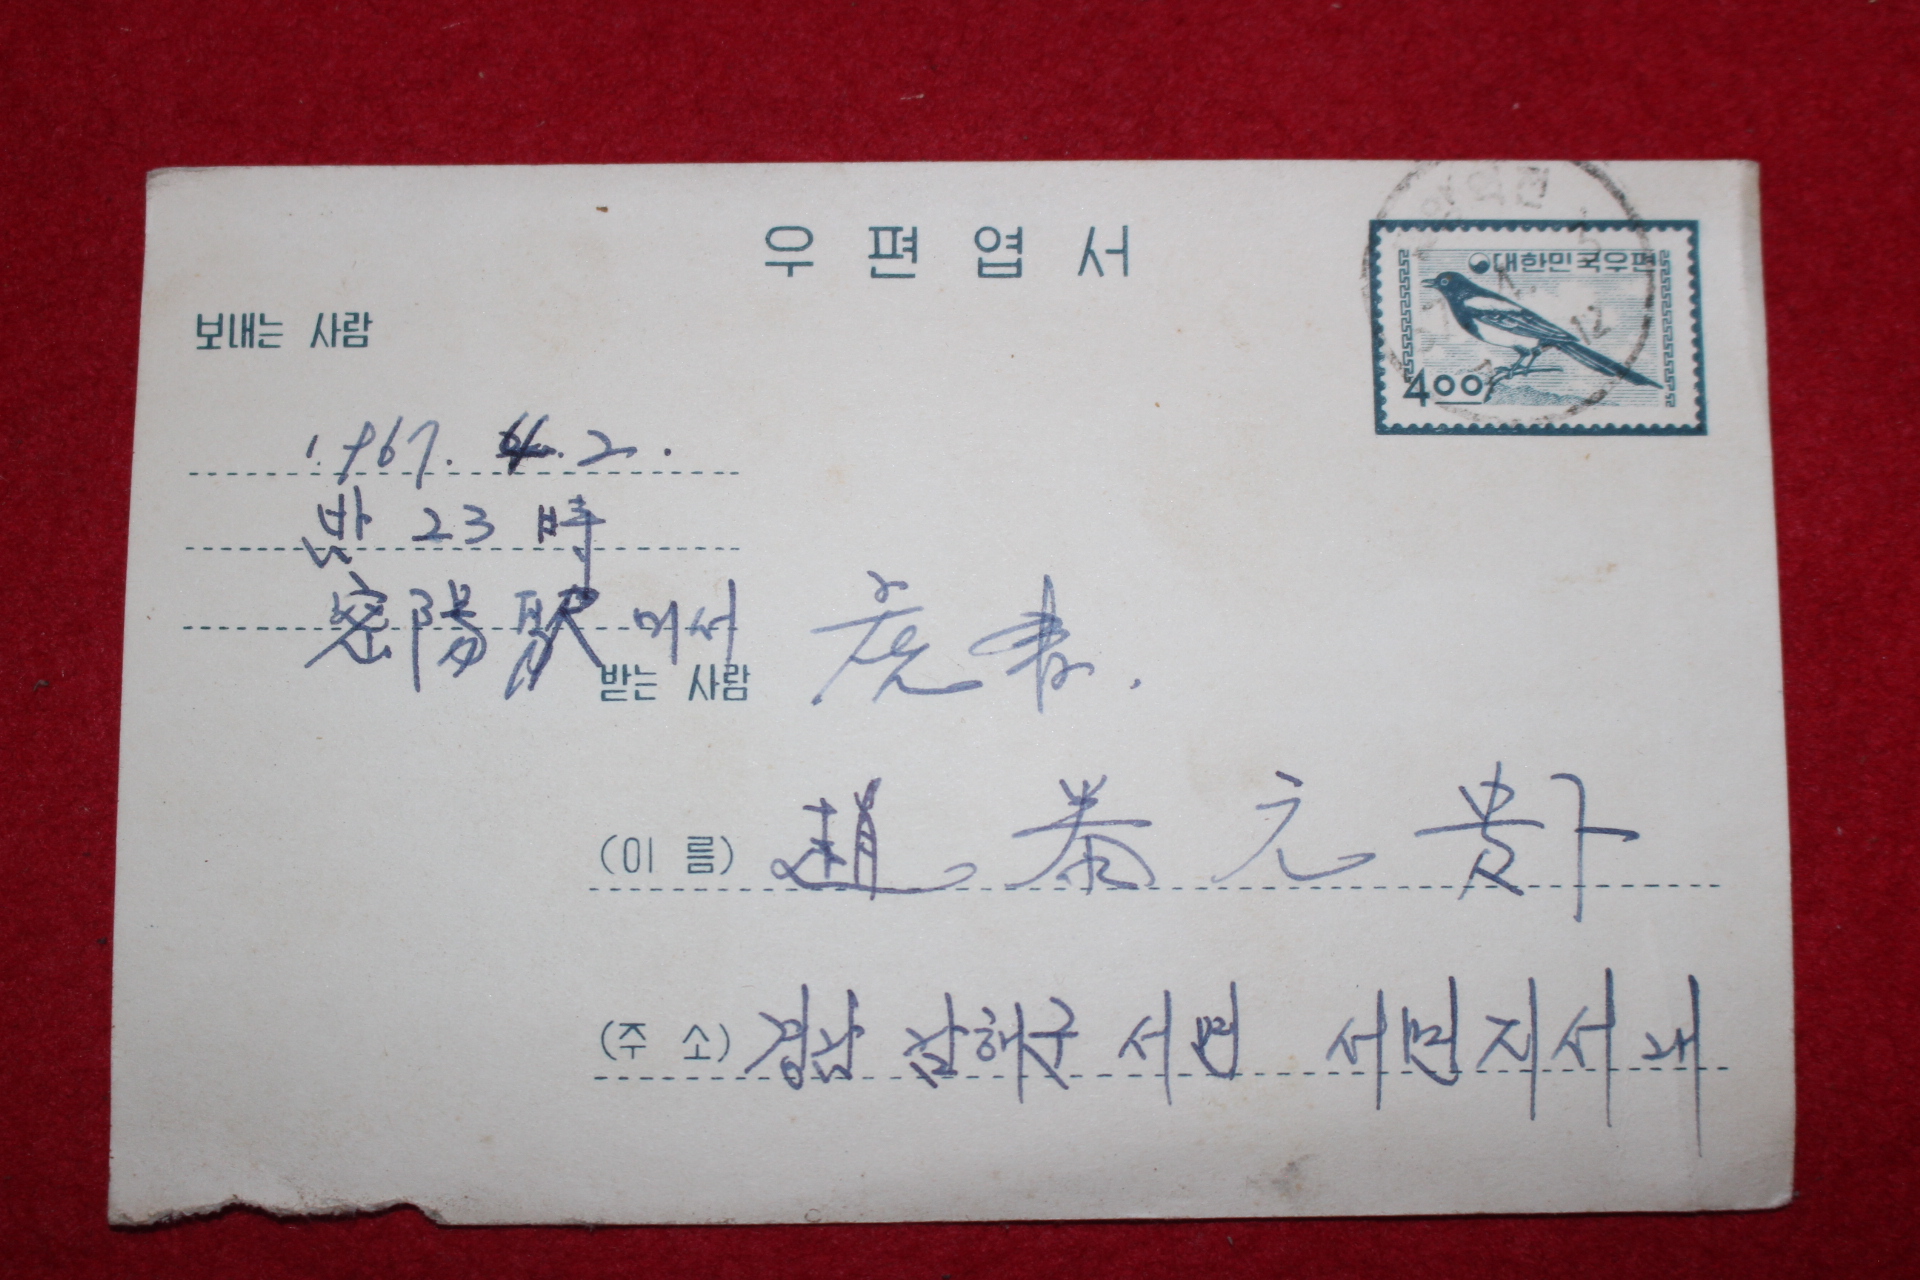 우편엽서
대한민국우편
400
보내는 사람
1967. 4. 2.
밤 23 時
密陽駅에서
받는 사람
(이 름) 趙 泰 元 貴下
(주 소) 경남 남해군 서면 서면지서 내